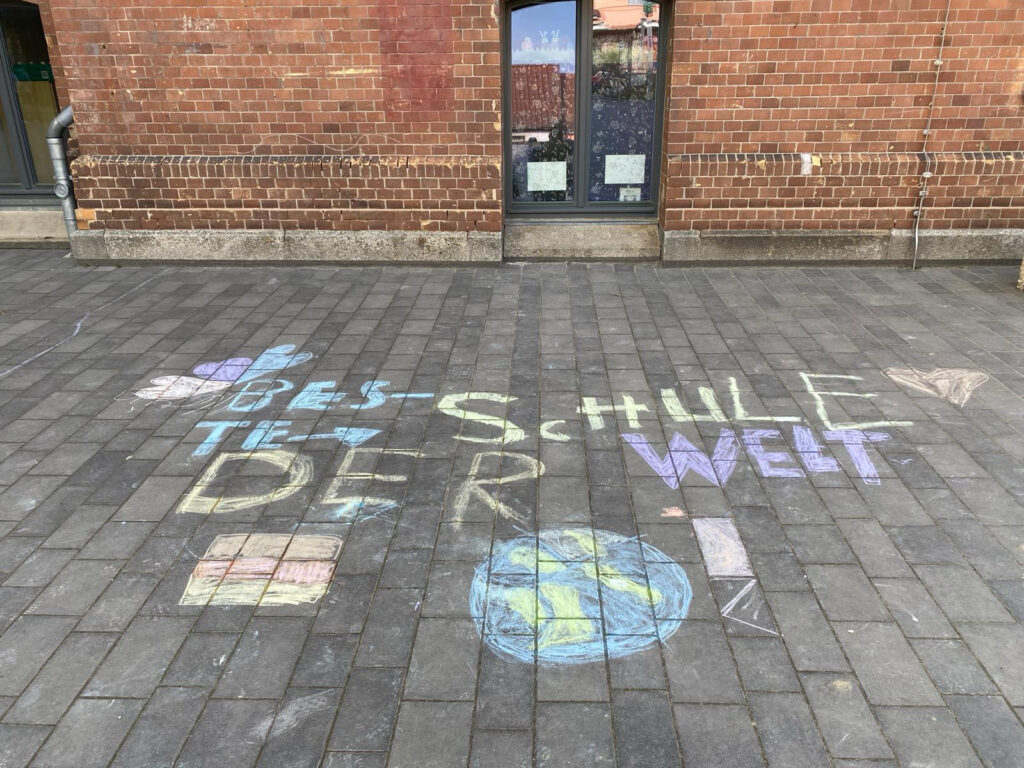 BES- SCHULE
TE WELT
DER